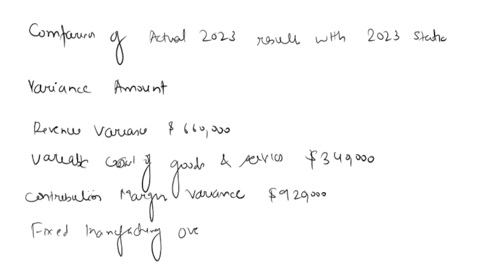 Comparison of Actual 2023 result with 2023 Static
Variance Amount
Revenue Variance $ 660,000
Variable cost of goods & services $340,000
Contribution Margin Variance $920,000
Fixed Manufacturing Ove